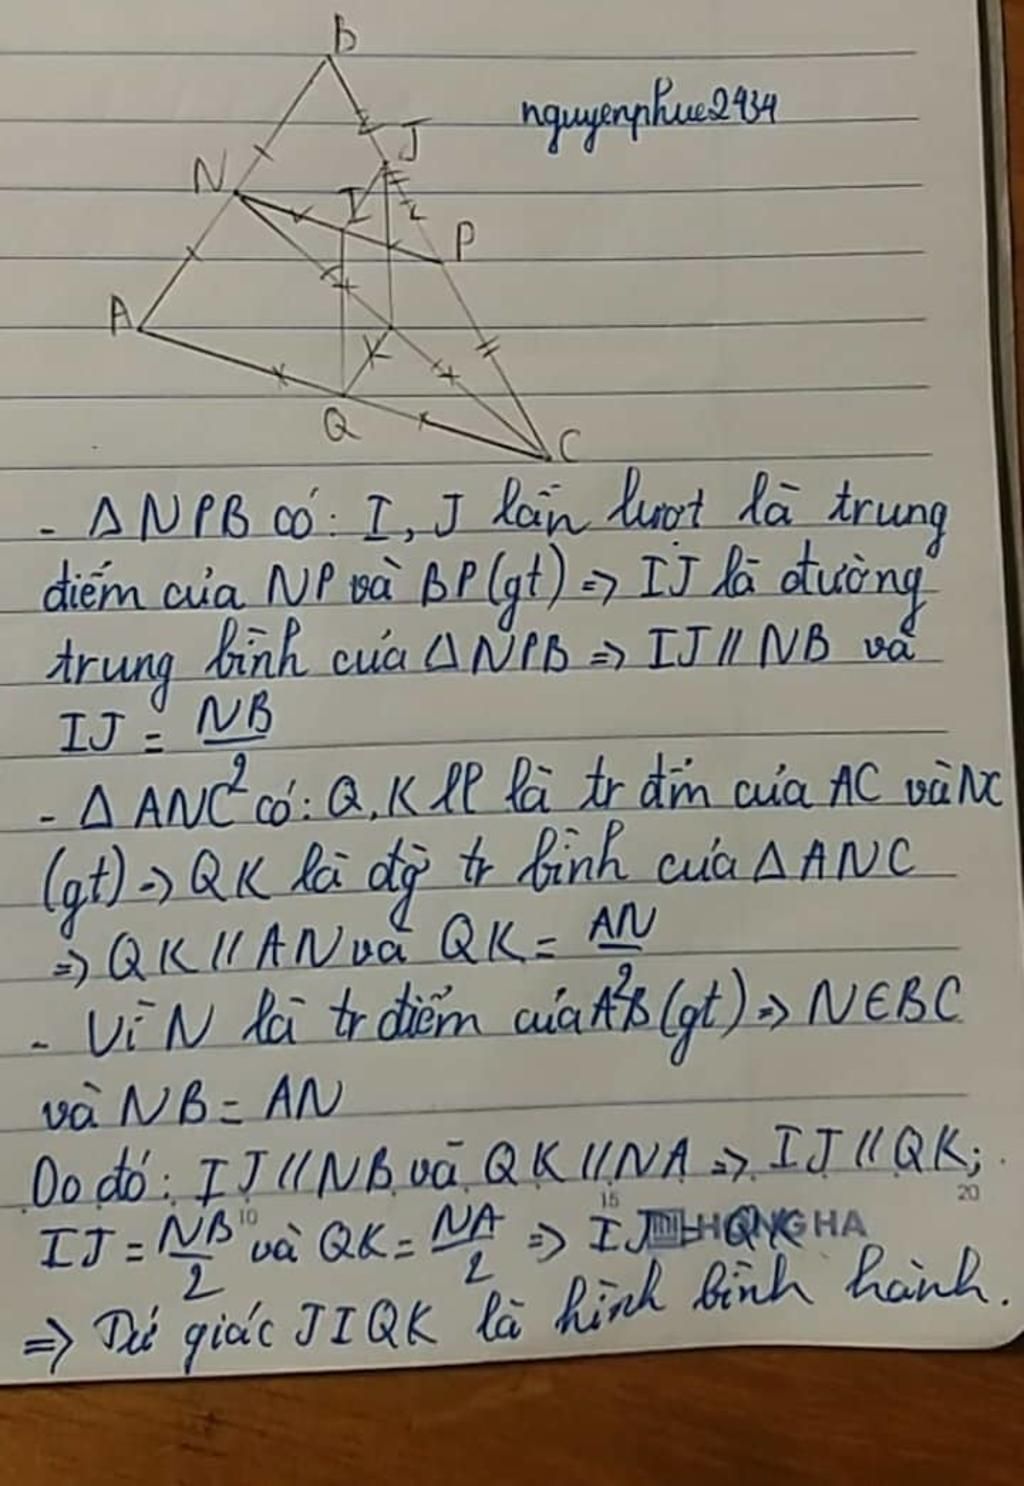 B
nguyenphuc2434
J
N
I
P
A
K
Q
C
- ΔNPB có: I, J lần lượt là trung
điểm của NP và BP (gt) => IJ là đường
trung bình của ΔNPB => IJ // NB và
IJ = NB/2
- ΔANC có: Q, K ll là tr đm của AC và NC
(gt) => QK là đg tr bình của ΔANC
=> QK // AN và QK = AN/2
- Vì N là tr điểm của AB (gt) => N∈BC
và NB = AN
Do đó: IJ // NB và QK // NA => IJ // QK;
10 15 20
IJ = NB/2 và QK = NA/2 => IJ = QK
HONG HA
=> Tứ giác JIQK là hình bình hành.